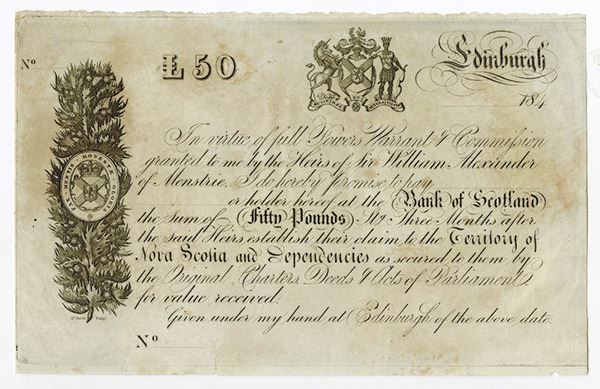 Nº
£50
Edinburgh
184
In virtue of full Powers Warrant & Commission
granted to me by the Heirs of Sir William Alexander
of Menstrie, I do hereby promise to pay
or holder hereof at the Bank of Scotland
the sum of (Fifty Pounds) Stg Three Months after
the said Heirs establish their claim to the Territory of
Nova Scotia and Dependencies as secured to them by
the Original Charters, Deeds & Acts of Parliament,
for value received.
Given under my hand at Edinburgh of the above date.
Nº